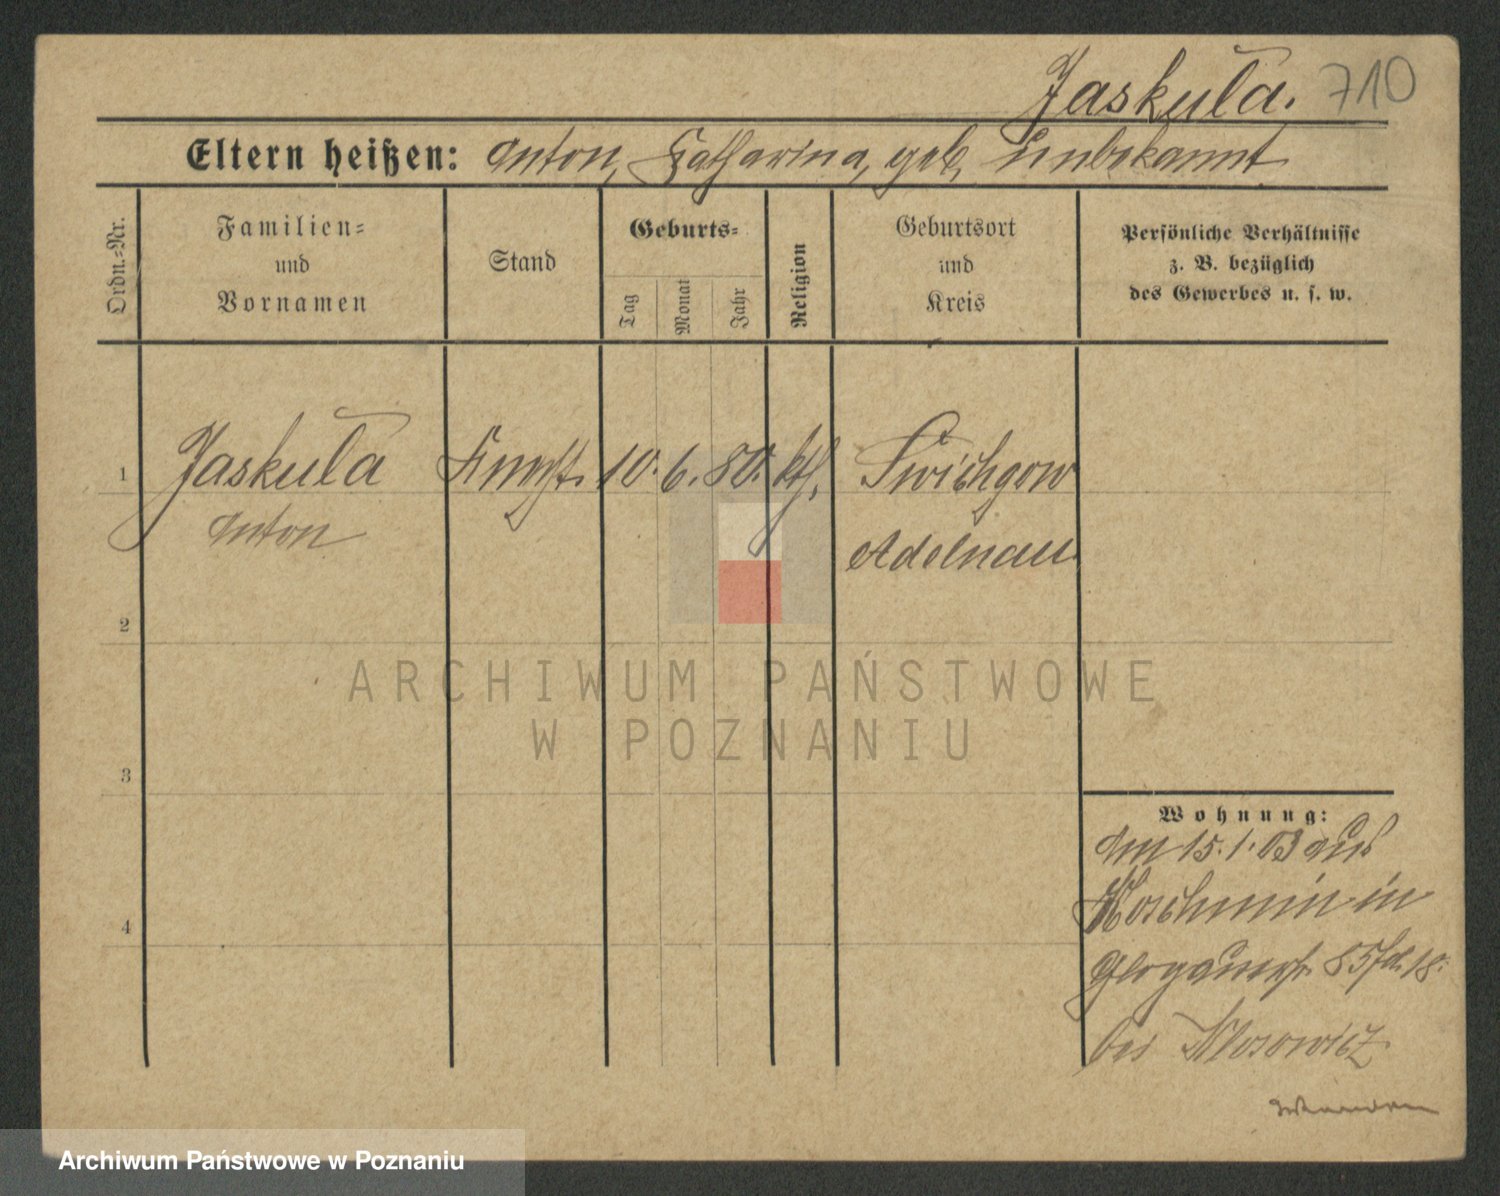 Jaskuła. 710
Eltern heißen: Anton, Katharina, geb. Unbekannt
Ordn.-Nr.
Familien-
und
Vornamen
Stand
Geburts-
Tag
Monat
Jahr
Religion
Geburtsort
und
Kreis
Persönliche Verhältnisse
z. B. bezüglich
des Gewerbes u. s. w.
1 Jaskuła Knecht. 10. 6. 80. kth.
Anton Adelnau
2
3
4
ARCHIWUM PAŃSTWOWE
W POZNANIU
Wohnung:
Am 15.1.03 aus
Koschmin in
Glogauerstr. 85
bei
Archiwum Państwowe w Poznaniu